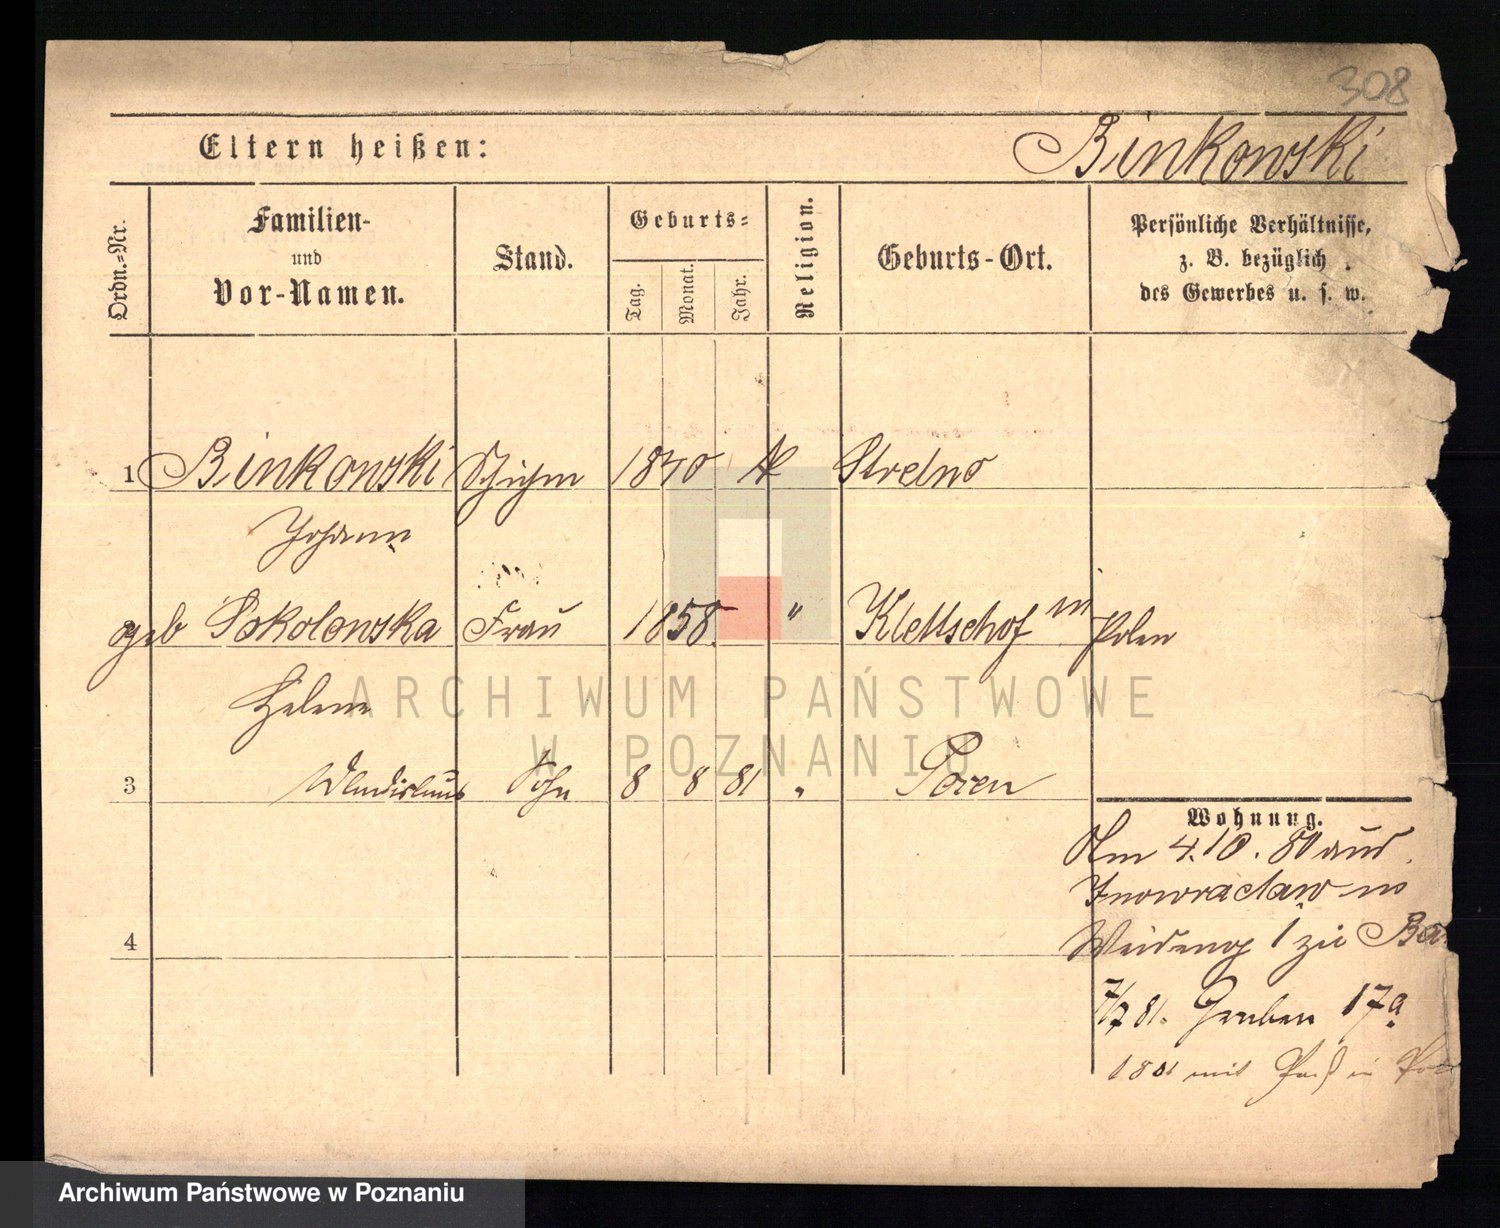 308
Eltern heißen: Binkowski
Ordn.-Nr.
Familien-
und
Vor-Namen.
Stand.
Geburts-
Tag. Monat. Jahr.
Religion.
Geburts-Ort.
Persönliche Verhältnisse,
z. B. bezüglich
des Gewerbes u. s. w.
1 Binkowski Schuhm 1840 K Strelno
Johann
geb Sokolowska Frau 1858 " Klettschof in Polen
Helene
3 Wladislaus Sohn 8 8 81 " Posen
Wohnung.
Am 4.10.80 aus
Inowraclaw in
4
Weideng 1 zu
7/7 81. Graben 17a
mit in
ARCHIWUM PAŃSTWOWE
W POZNANIU
Archiwum Państwowe w Poznaniu